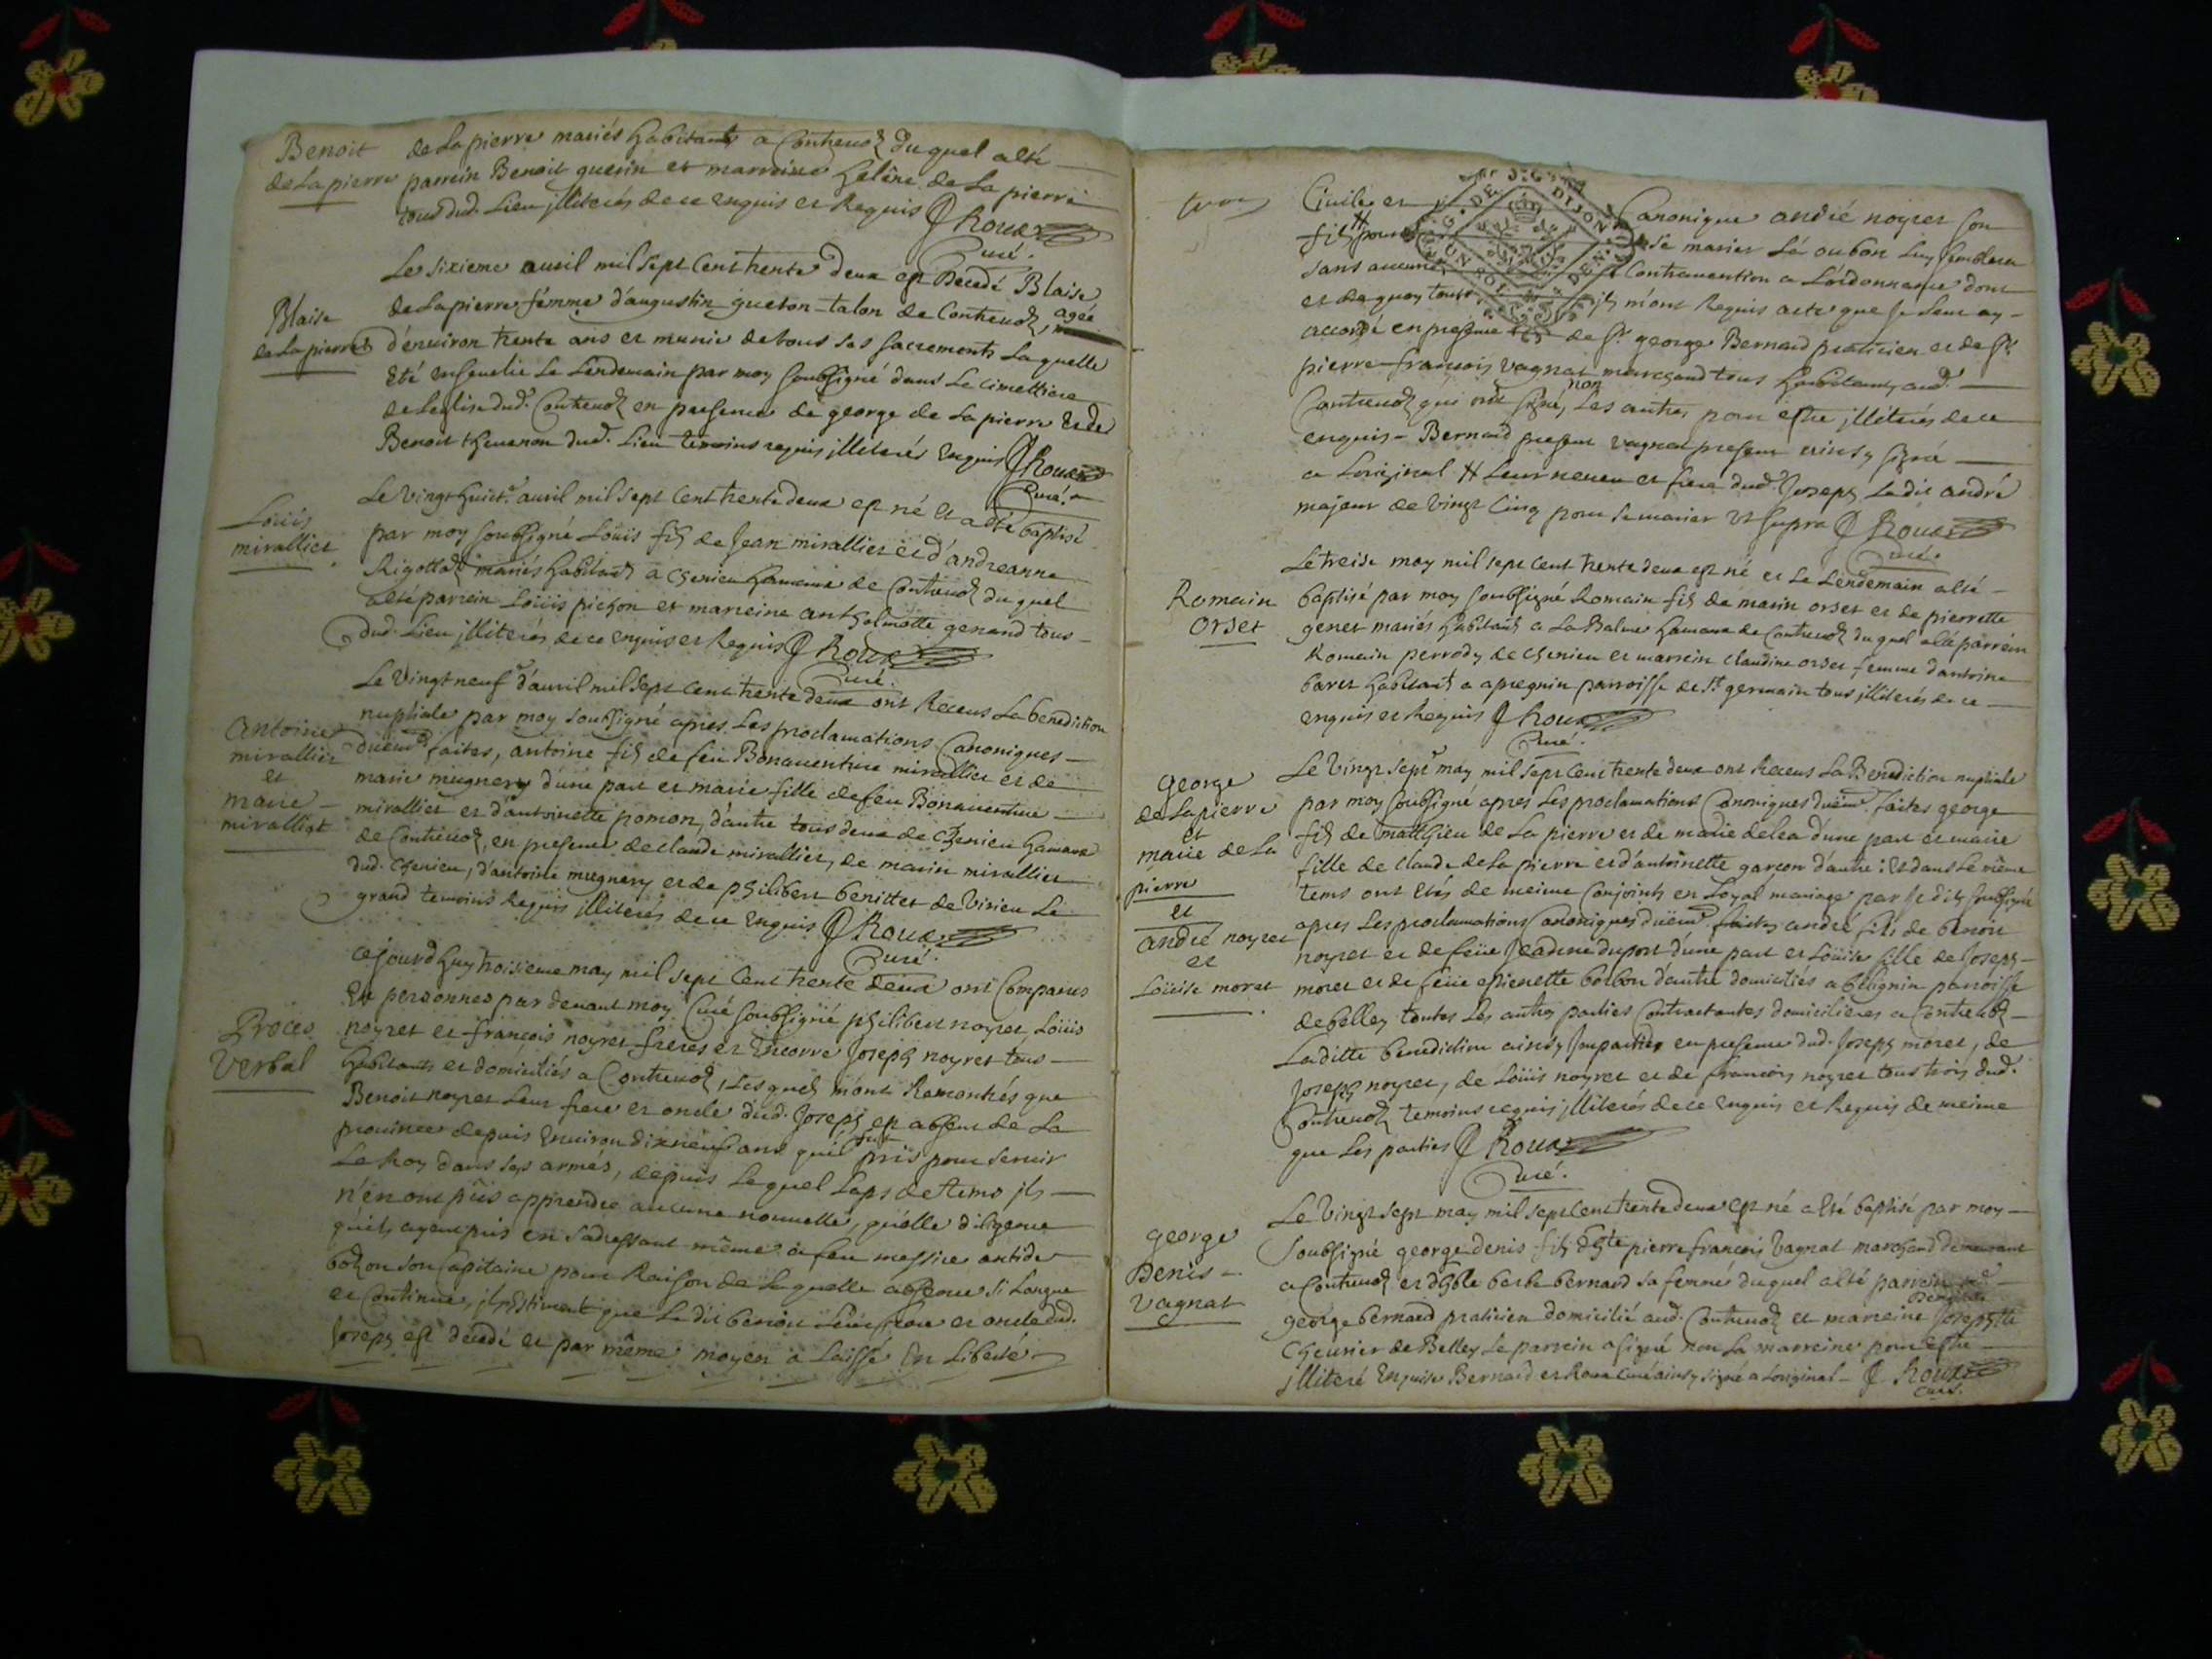 Benoit
de la pierre
de la pierre mariés habitants a Contrevoz du quel a été
parrein Benoit guerin et marreine helêne de la pierre
tous dud. Lieu illiterés de ce enquis et Requis J Roux
Curé.
Blaise
de la pierre
Le sixieme avril mil sept cent trente deux est Decedé Blaise
de la pierre femme d'augustin gueton-talon de Contrevoz, agée
d'environ trente ans et munie de tous ses sacrements laquelle
Eté ensevelie le Lendemain par moy soubsigné dans le cimettiere
de leglise dud. Contrevoz en presence de george de la pierre et de
Benoit thevenon dud. Lieu temoins requis illiterés enquis J Roux
Curé.
Loüis
mirallier
Le vingt huict.e avril mil sept cent trente deux est né et a été baptisé
par moy soubsigné Loüis fils de Jean mirallier et d'andreanne
Rigottat mariés habitants a Chenieu hameau de Contrevoz du quel
a été parrein Loüis pichon et marreine anthelmette genand tous
dud. Lieu illiterés de ce enquis et Requis J Roux
Curé.
Antoine
mirallier
et
marie
mirallier
Le vingt neuf d'avril mil sept cent trente deux ont Receus La benediction
nuptiale par moy soubsigné apres Les proclamations Canoniques
düem.t faites, antoine fils de feu Bonaventure mirallier et de
marie mugnery d'une part et marie fille de feu Bonaventure
mirallier et d'antoinette pomon, d'autre tous deux de Chenieu hameau
de Contrevoz, en presence de claude mirallier, de marin mirallier
dud. Chenieu, d'antoine mugnery et de philibert benitter de virieu Le
grand temoins Requis illiterés de ce enquis J Roux
Curé.
Proces
Verbal
cejourdhuy troisieme may mil sept cent trente deux ont Comparus
En personnes par devant moy Curé soubsigné philibert noyret, Loüis
noyret et françois noyret freres et Encorre Joseph noyret tous
habitants et domiciliés a Contrevoz, lesquels m'ont Remontrés que
Benoit noyret leur frere et oncle dud. Joseph est absent de La
province depuis Environ dixneuf ans qu'il fut pris pour servir
Le Roy dans ses armés, depuis Lequel Laps de tems ils
n'en ont pûs apprendre aucune nouvelle, quelle diligence
qu'ils ayent pris en s'adressant même a feu messire antide
bolzon son Capitaine pour Raison de laquelle absence si Longue
et Continüe, ils Estiment que Le dit benoit leur frere et oncle dud.
Joseph est decedé et par même moyen a laissé En Liberté
Civile et Canonique andré noyret son
fils # pour se marier Lá oubon Luy semblera
sans aucune Contravention a L'ordonnance dont
et de quoy tous ils m'ont Requis acte que je Leur ay
accordé en presence de S.r george Bernard praticien et de S.r
pierre-françois vagnat marchand tous habitants aud.
Contrevoz qui ont signé, non Les autres pour estre illiterés de ce
enquis - Bernard present vagnat present ainsy signé
a Loriginal # Leur neveu et frere dud. Joseph Ledit andré
majeur de vingt cinq pour se marier Ut supra J Roux
Curé.
Romain
Orset
Le treise may mil sept cent trente deux est né et Le Lendemain a été
baptisé par moy soubsigné Romain fils de marin orset et de pierrette
genet mariés habitants a La Balme hameau de Contrevoz du quel a été parrein
Romain perrody de chenieu et marrein claudine orset femme d'antoine
baret habitants a apregnin parroisse de S.t germain tous illiterés de ce
enquis et Requis J Roux
Curé.
George
de la pierre
et
marie de la
pierre
et
andré noyret
et
Loüise moret
Le vingt sept may mil sept cent trente deux ont Receus La Benediction nuptiale
par moy soubsigné apres Les proclamations Canoniques düem.t faites george
fils de matthieu de la pierre et de marie delea d'une part et marie
fille de claude de la pierre et d'antoinette garçon d'autre: Et dans Le même
tems ont Etés de meime Conjoints en Loyal mariage par le dit soubsigné
apres Les proclamations Canoniques düem.t faites andré fils de benoit
noyret et de feüe Jeadme dupont d'une part et Loüise fille de Joseph
moret et de feüe pierrette bolbon d'autre domiciliés a bélignin paroisse
de belley toutes Les autres parties Contractantes domicilieres a Contrevoz
Laditte benediction ainsy Impartie en presence dud. Joseph moret, de
Joseph noyret, de Loüis noyret et de françois noyret tous trois dud.
Contrevoz temoins requis illiterés de ce enquis et Requis de meime
que Les parties J Roux
Curé.
george
Denis
vagnat
Le vingt sept may mil sept cent trente deux est né a eté baptisé par moy
soubsigné george denis fils d'h.te pierre françois vagnat marchand demeurant
a Contrevoz et d'h.ble berte bernard sa femme du quel a été parrein
george bernard praticien domicilié aud. Contrevoz et marreine Josephte
Chevrier de Belley Le parrein a signé non La marreine pour estre
illiteré Enquise Bernard et Roux curé ainsy signé a Loriginal - J Roux
curé.